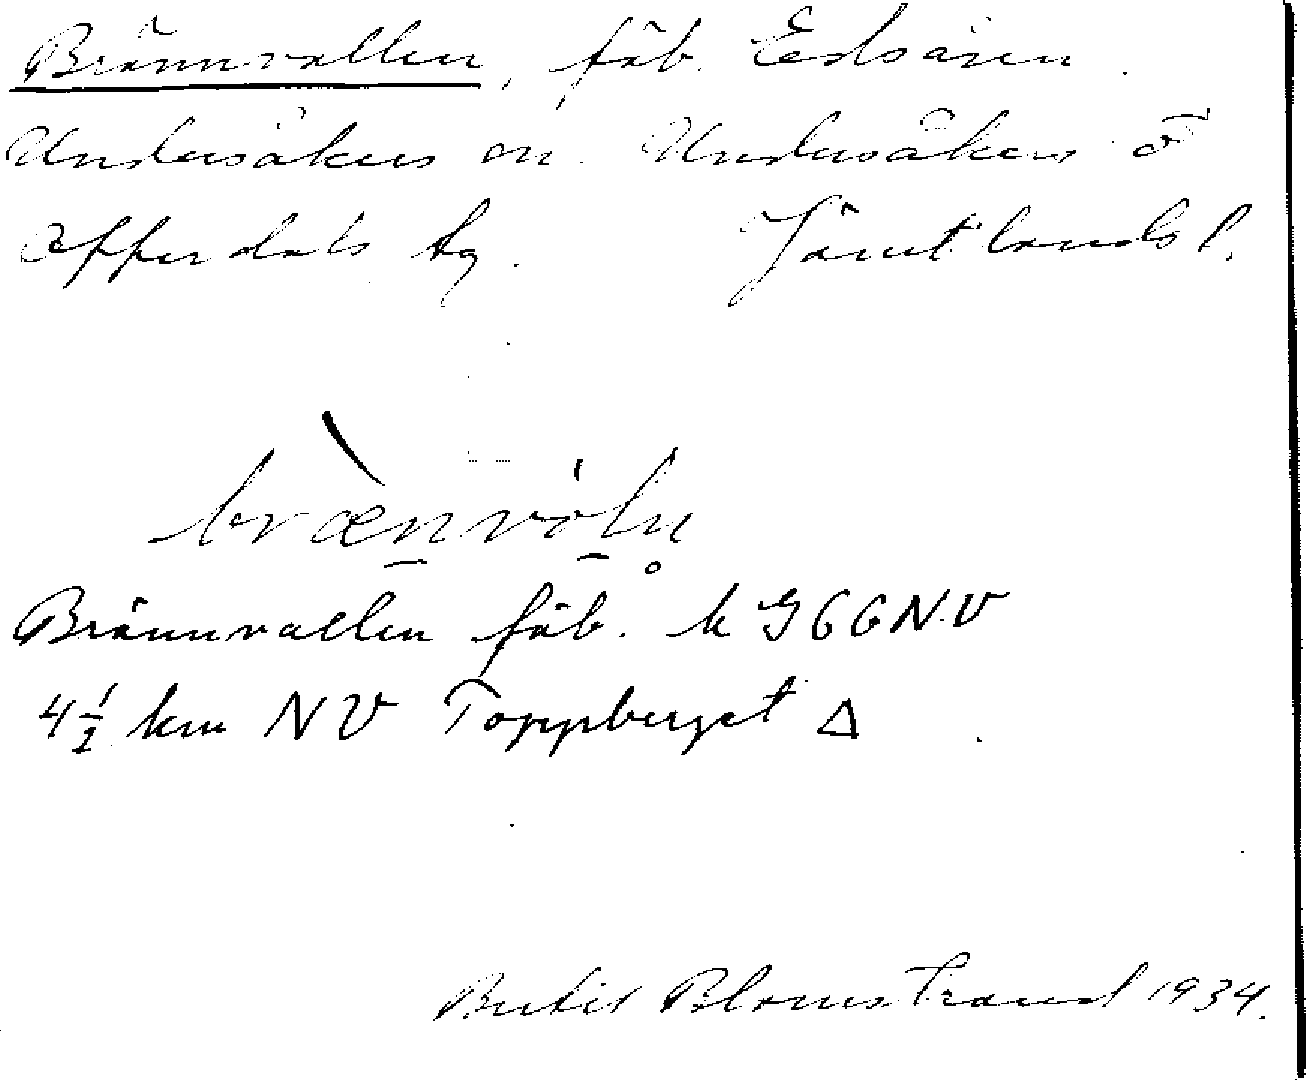 Brännvallen, fäb. Edsåsen
Undersåkers sn. Undersåkers o
Offerdals tg. Jämtlands l.
brænvòln̥
Brännvallen fäb. k G66NV
4½ km NV Toppberget Δ
Bertil Blomstrand 1934.